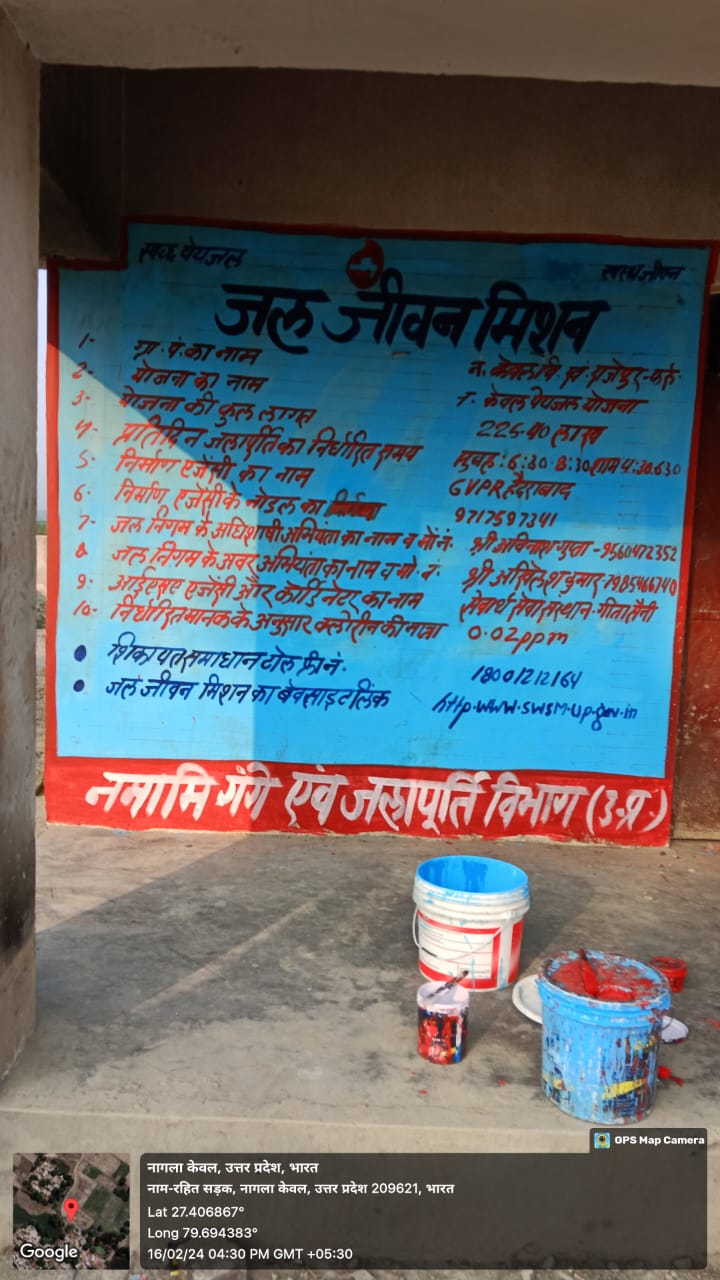 स्वच्छ पेयजल
स्वस्थ जीवन
जल जीवन मिशन
1- ग्रा. पं. का नाम न. केवल वि. खं. राजेपुर-फर्रु.
2- योजना का नाम न. केवल पेयजल योजना
3- योजना की कुल लागत 225.40 लाख
4- प्रतिदिन जलापूर्ति का निर्धारित समय सुबह: 6:30-8:30 शाम 4:30.6.30
5- निर्माण एजेंसी का नाम GVPR हैदराबाद
6- निर्माण एजेंसी के नोडल का 9717597341
7- जल निगम के अधिशाषी अभियंता का नाम व मो. नं. श्री अविनाश गुप्ता-9560472352
8- जल निगम के अवर अभियंता का नाम व मो. नं. श्री अखिलेश कुमार
9- आईएसए एजेंसी और कोर्डिनेटर का नाम सेवार्थ सेवा संस्थान-गीता सैनी
10- निर्धारित मानक के अनुसार क्लोरीन की मात्रा 0.02ppm
• शिकायत समाधान टोल फ्री नं. 18001212164
• जल जीवन मिशन का बेवसाइट लिंक http.www.swsm.up.gov.in
नमामि गंगे एवं जलापूर्ति विभाग (उ.प्र.)
GPS Map Camera
नागला केवल, उत्तर प्रदेश, भारत
नाम-रहित सड़क, नागला केवल, उत्तर प्रदेश 209621, भारत
Lat 27.406867°
Long 79.694383°
16/02/24 04:30 PM GMT +05:30
Google